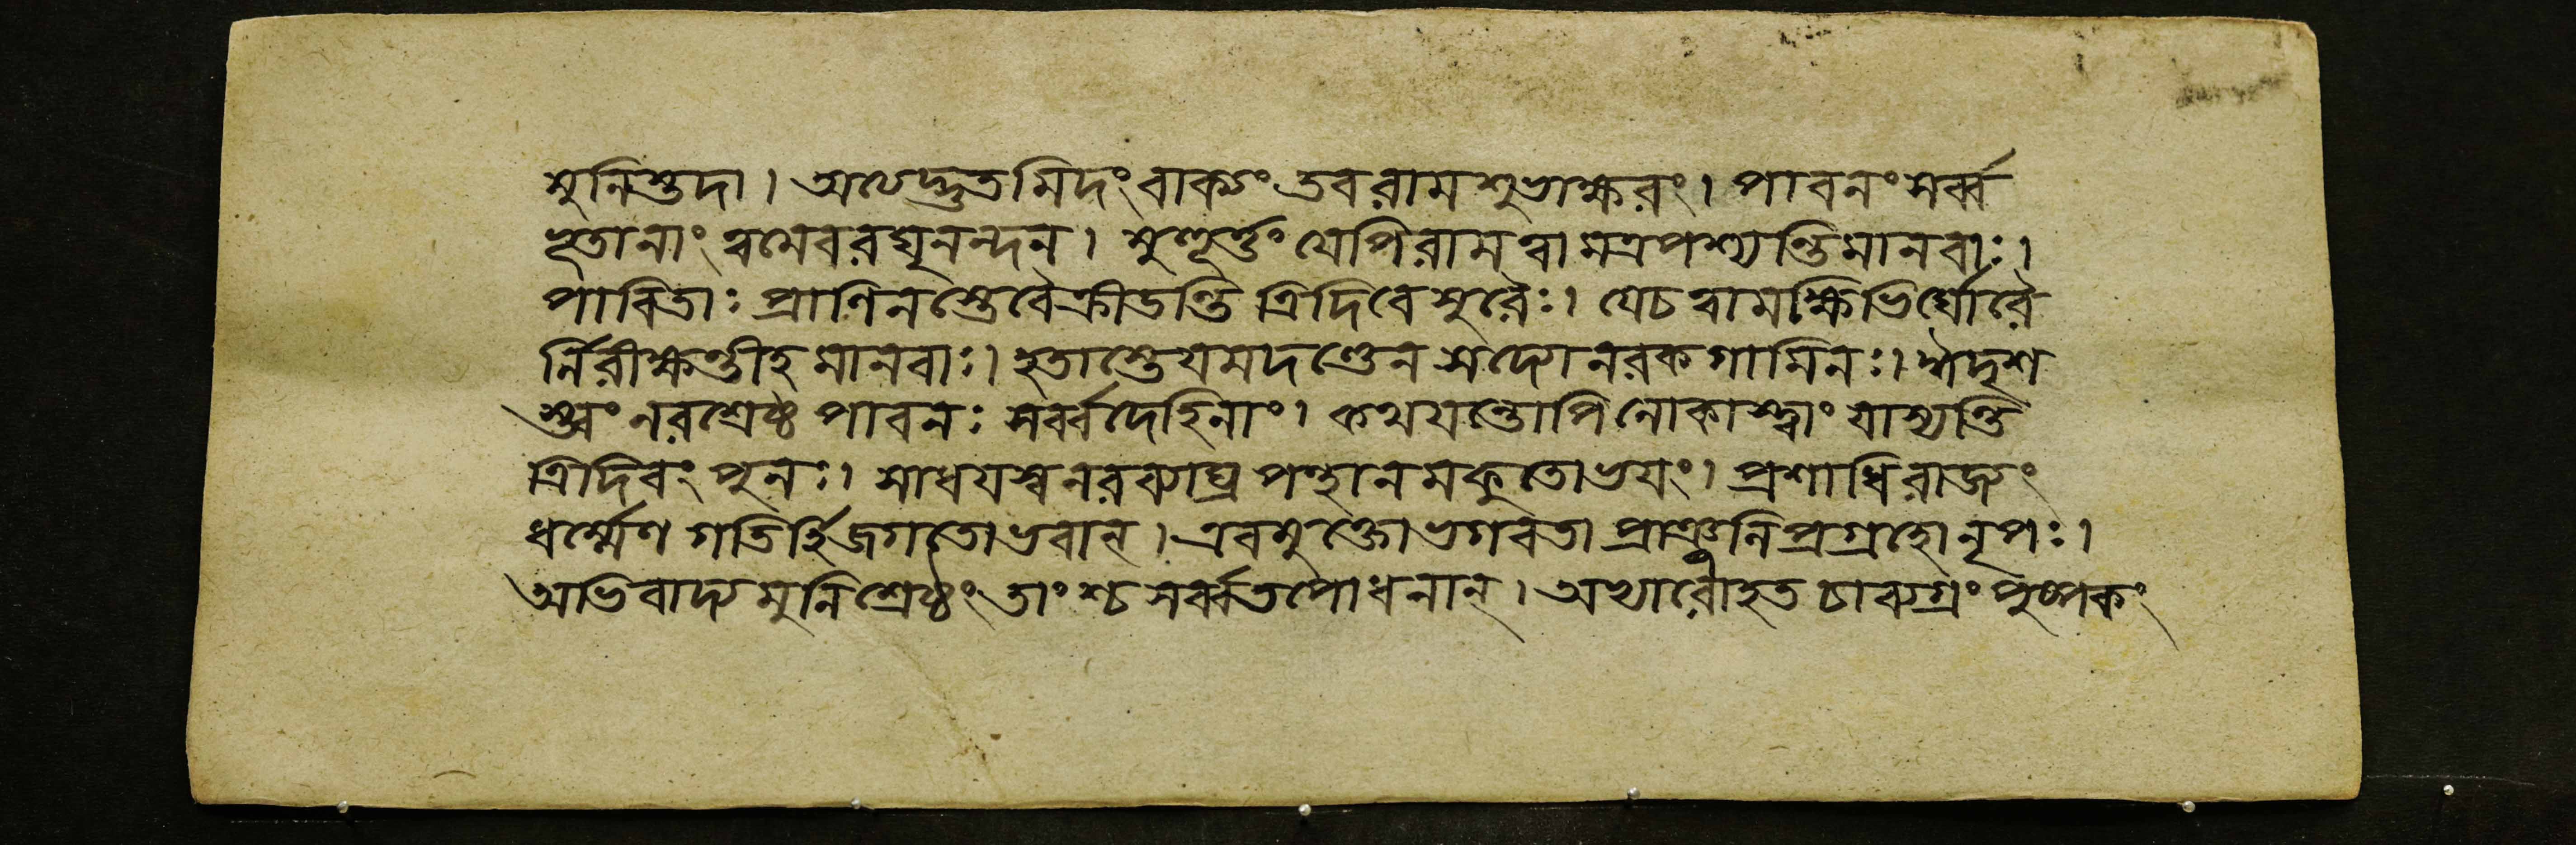 মুনিস্তদা। অত্যদ্ভুতমিদং বাক্যং তব রাম শুভাক্ষরং। পাবনং সর্ব্ব
ভূতানাং ত্বমেব রঘুনন্দন। মুহূর্ত্তং যেপি রাম ত্বামত্র পশ্যন্তি মানবাঃ।
পাবিতাঃ প্রাণিনস্তে বৈ ক্রীডন্তি ত্রিদিবে সুরৈঃ। যে চ ত্বামক্ষিভির্ঘোরৈ
র্ন্নিরীক্ষন্তীহ মানবাঃ। হতাস্তে যমদণ্ডেন সদ্যো নরকগামিনঃ। ঈদৃশ
স্ত্বং নরশ্রেষ্ঠ পাবনঃ সর্ব্বদেহিনাং। কথযন্তোপি লোকাস্ত্বাং যাস্যন্তি
ত্রিদিবং পুনঃ। সাধযস্ব নরব্যাঘ্র পন্থানমকুতোভযং। প্রশাধি রাজ্যং
ধর্ম্মেণ গতির্হি জগতো ভবান্। এবমুক্তো ভগবতা প্রাঞ্জলিপ্রগ্রহো নৃপঃ।
অভিবাদ্য মুনিশ্রেষ্ঠং তাংশ্চ সর্ব্বতপোধনান্। অথারোহত চাব্যগ্রং পুষ্পকং